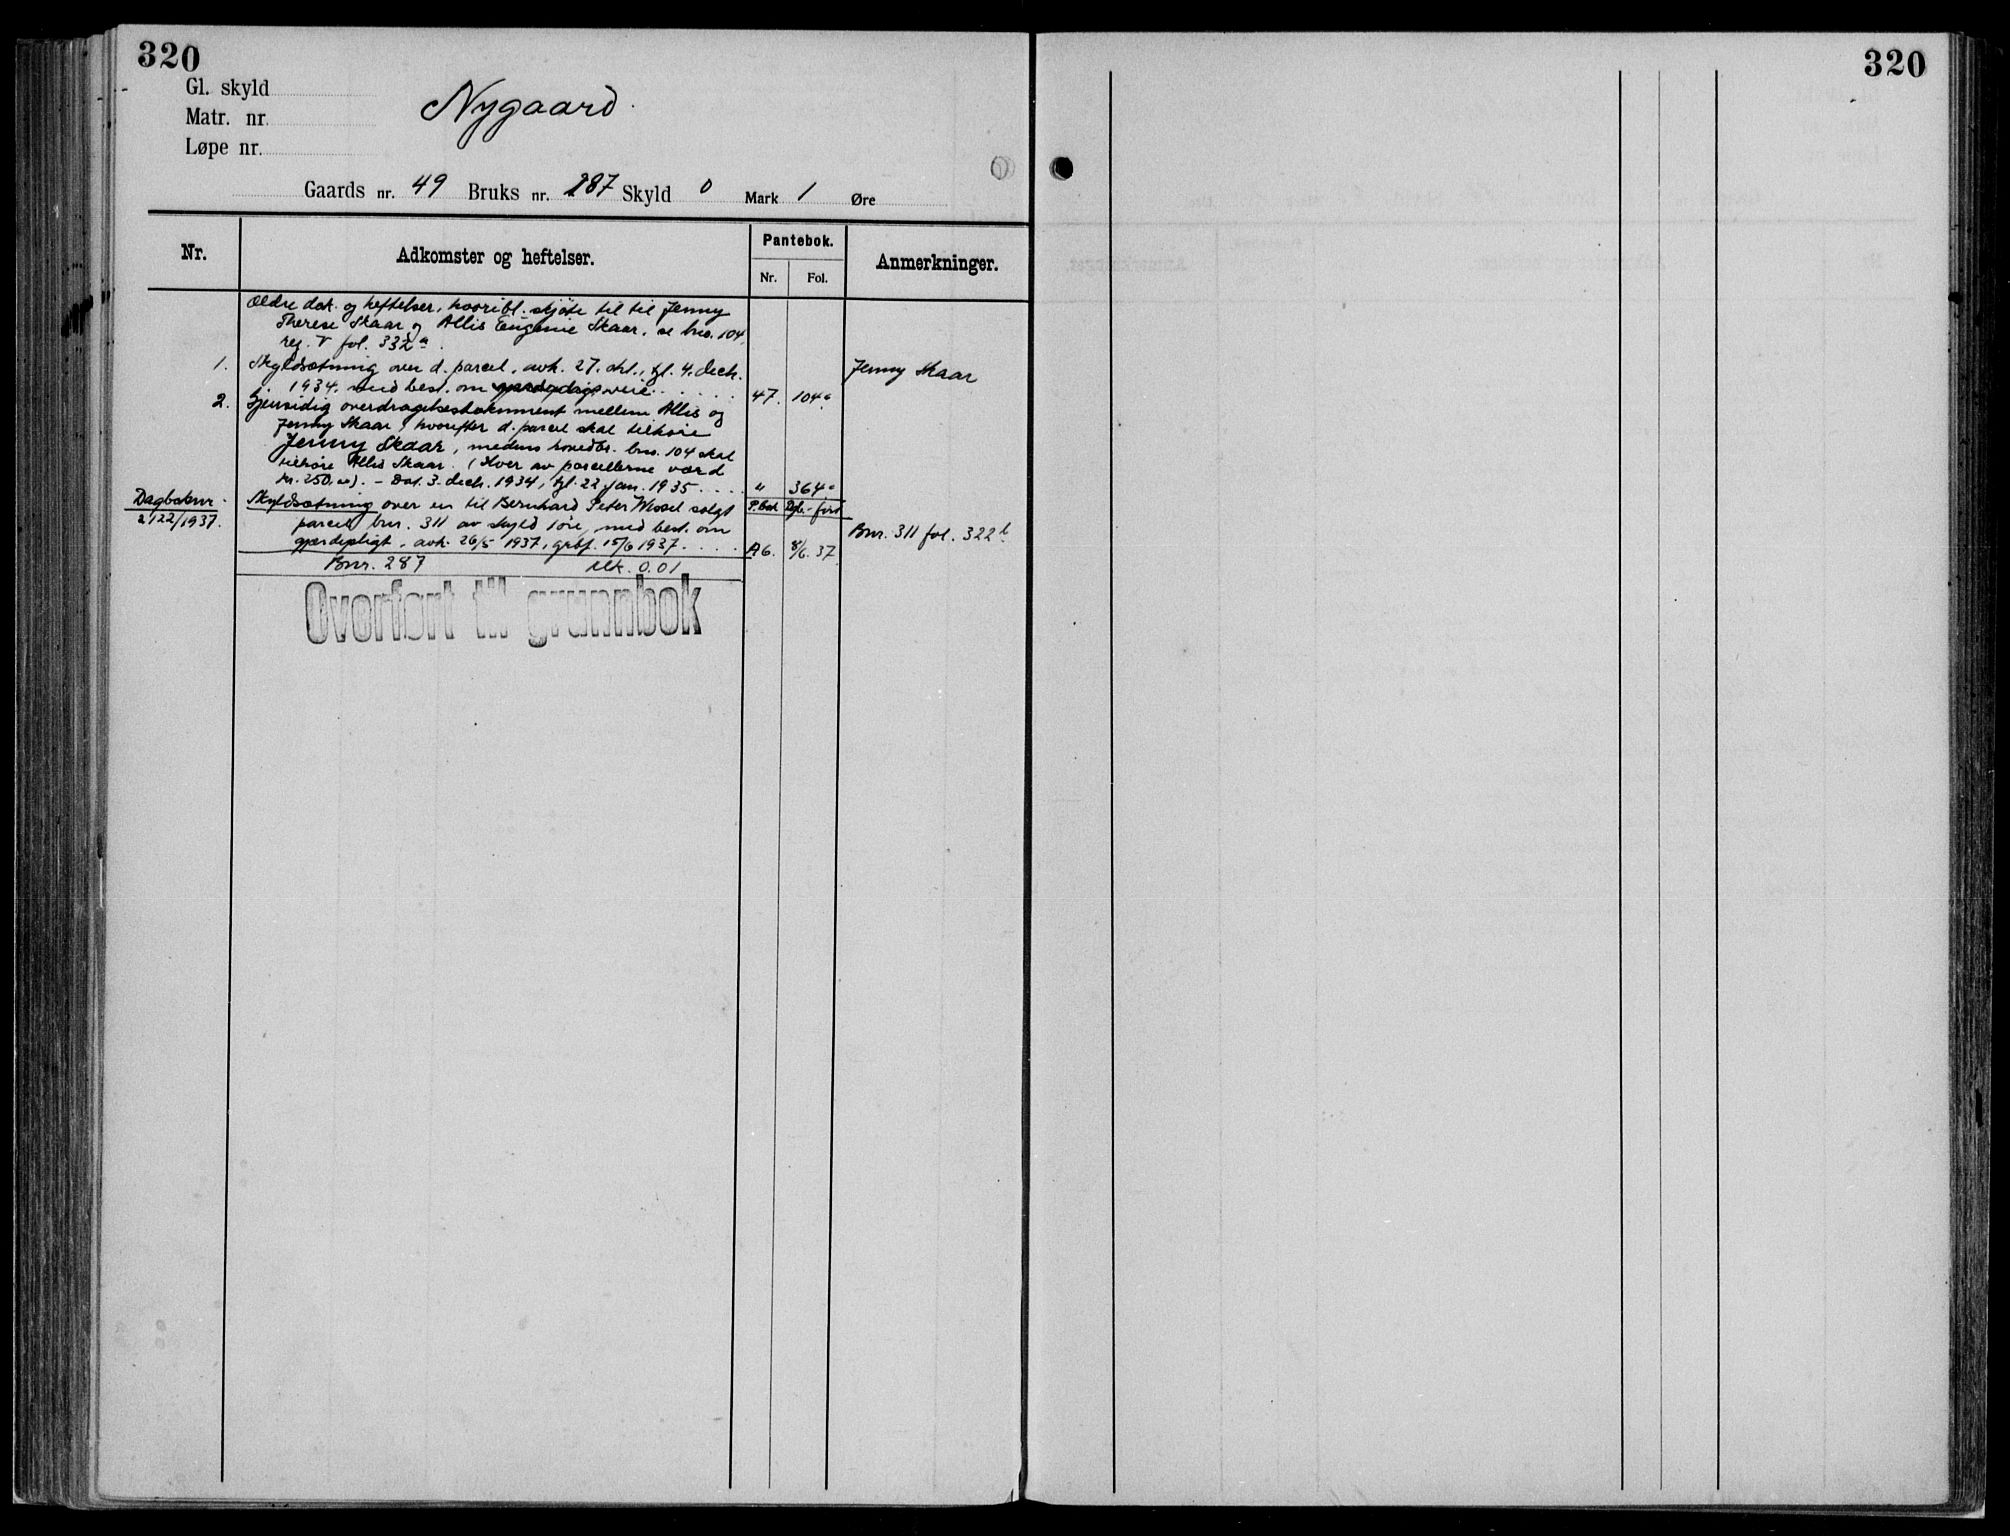 320
Gl. skyld
Matr. nr.
Løpe nr.
Nygaard.
Gaards nr. 49 Bruks nr. 287 Skyld 0 Mark 1 Øre
Nr. Adkomster og heftelser. Pantebok. Anmerkninger.
Nr. Fol.
Ældre dok. og heftelser, hvoribl. skjøte til til Jenny
Therese Skaar og Allis Eugenie Skaar, se bno. 104,
reg. V fol. 332 a.
1. Skyldsætning over d. parcel, avh. 27. okt., tgl. 4. decb. Jenny Skaar
1934, med best. om veie. . . . . . 47. 104 a
2. Gjensidig overdragelsesdokument mellem Allis og
Jenny Skaar, hvorefter d. parcel skal tilhøre
Jenny Skaar, medens hovedbr. bno. 104 skal
tilhøre Allis Skaar. (Hver av parcellerne værd
kr. 250,00). - Dat. 3. decb. 1934, tgl. 22. jan. 1935. . . . " 364 a
Dagboknr. Skyldsætning over en til Bernhard Peter Wessel solgt P.bok Dgb.-ført
2122/1937. parcel, bnr. 311 av skyld 1 øre, med best. om Bnr. 311 fol. 322 b
gjerdepligt, avh. 26/5 1937, grbf. 15/6 1937. . . . . A6. 8/6. 37
Bnr. 287 Mk. 0.01
Overført til grunnbok
320